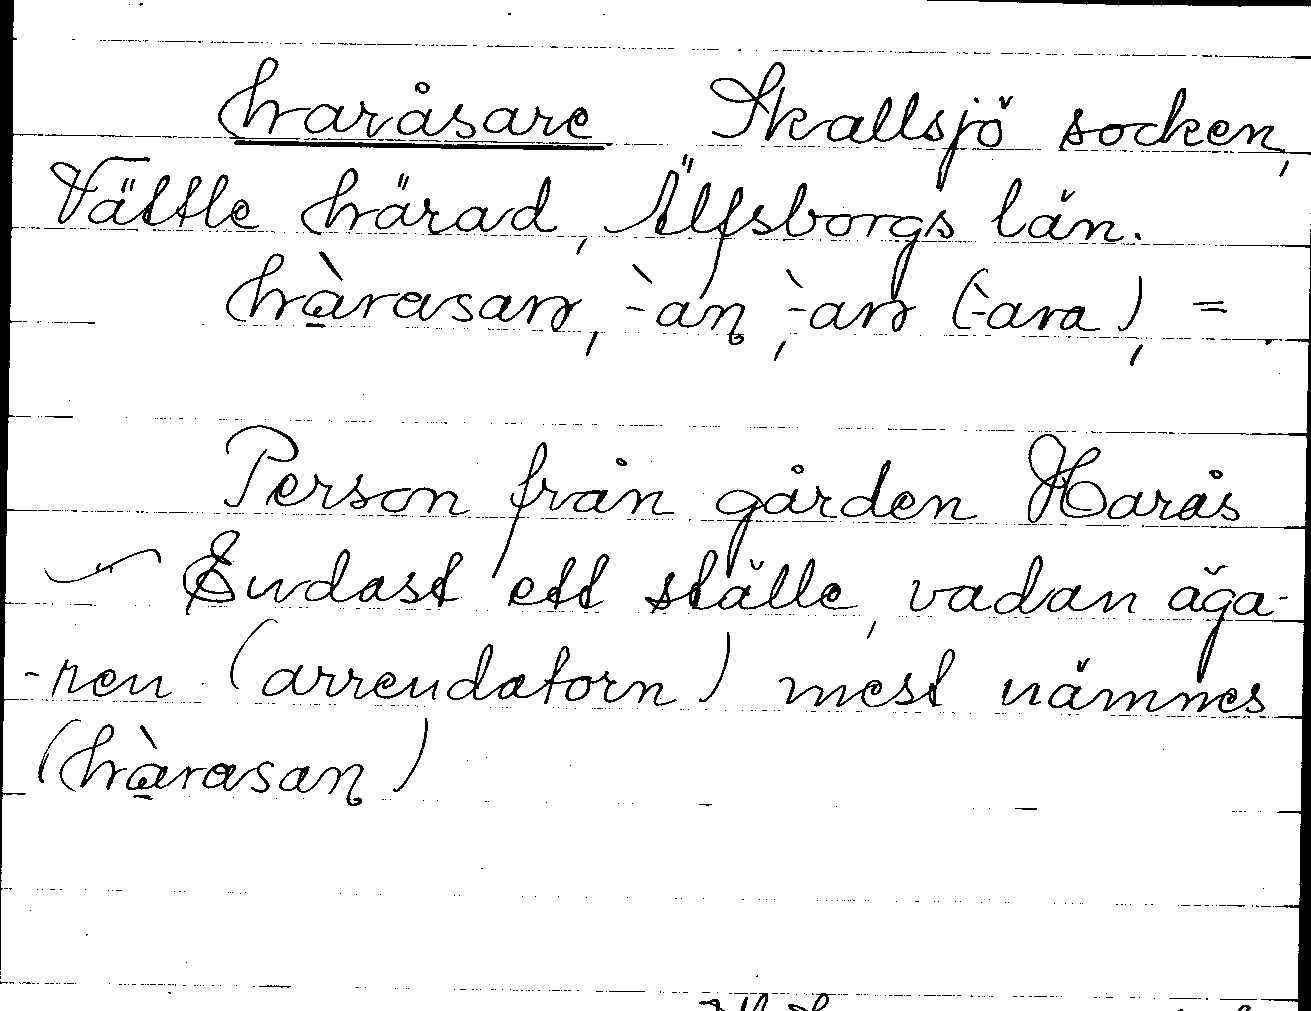 haråsare Skallsjö socken,
Vättle härad, Älfsborgs län.
hàrasar, -̀an̥, -̀ar (-̀ara), =
Person från gården Harås
Endast ett ställe, vadan äga-
-ren (arrendatorn) mest nämnes
(hàrasan̥)